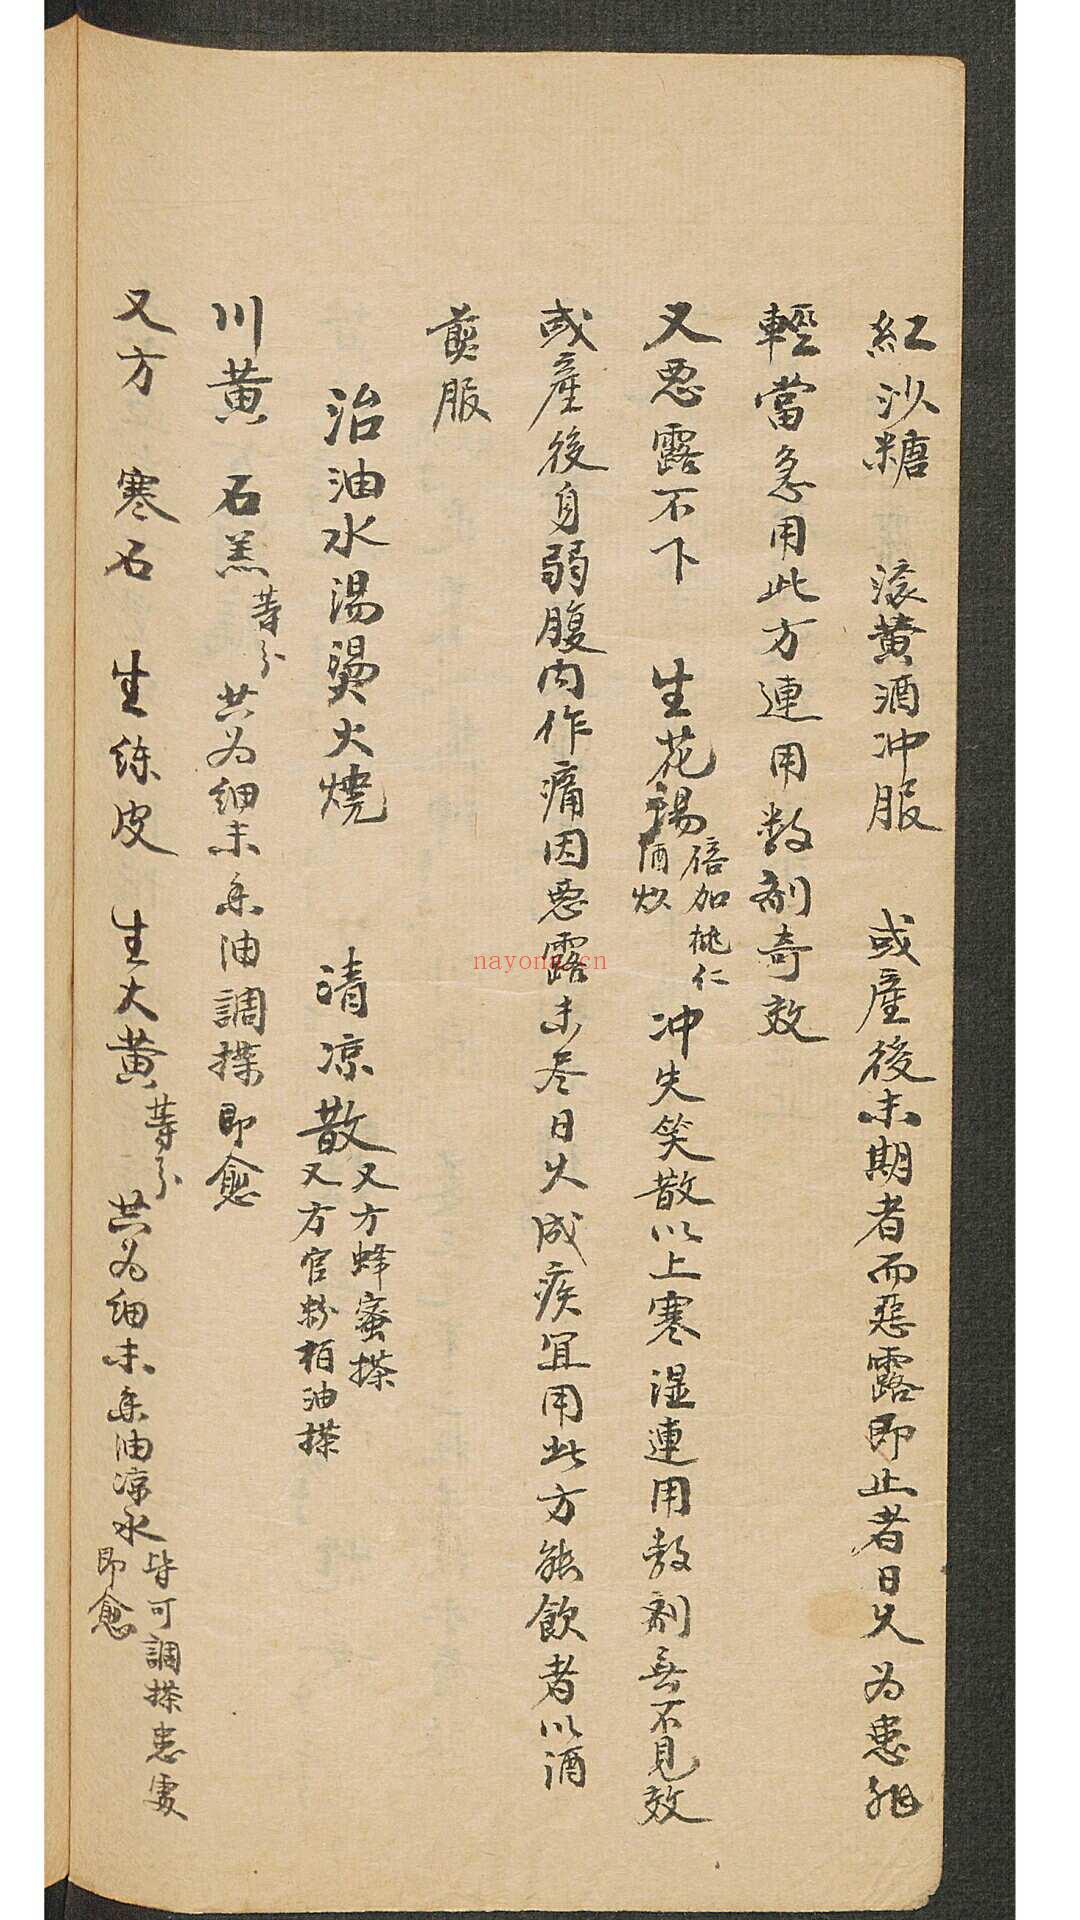 紅沙糖 滾黄酒冲服 或產後未期者而惡露即止者日久為患非
輕當急用此方連用数剤奇效
又惡露不下 生花湯倍加桃仁酒炆冲失笑散以上寒湿連用数剤無不見效
或產後身弱腹内作痛因惡露未尽日久成疾宜用此方能飲者以酒
煎服
治油水湯燙火燒 清凉散又方蜂蜜搽又方官粉柏油搽
川黄 石羔等分共為细末香油調搽即愈
又方 寒石 生練皮 生大黄等分共為细末香油凉水皆可調搽患處即愈
nayona.cn